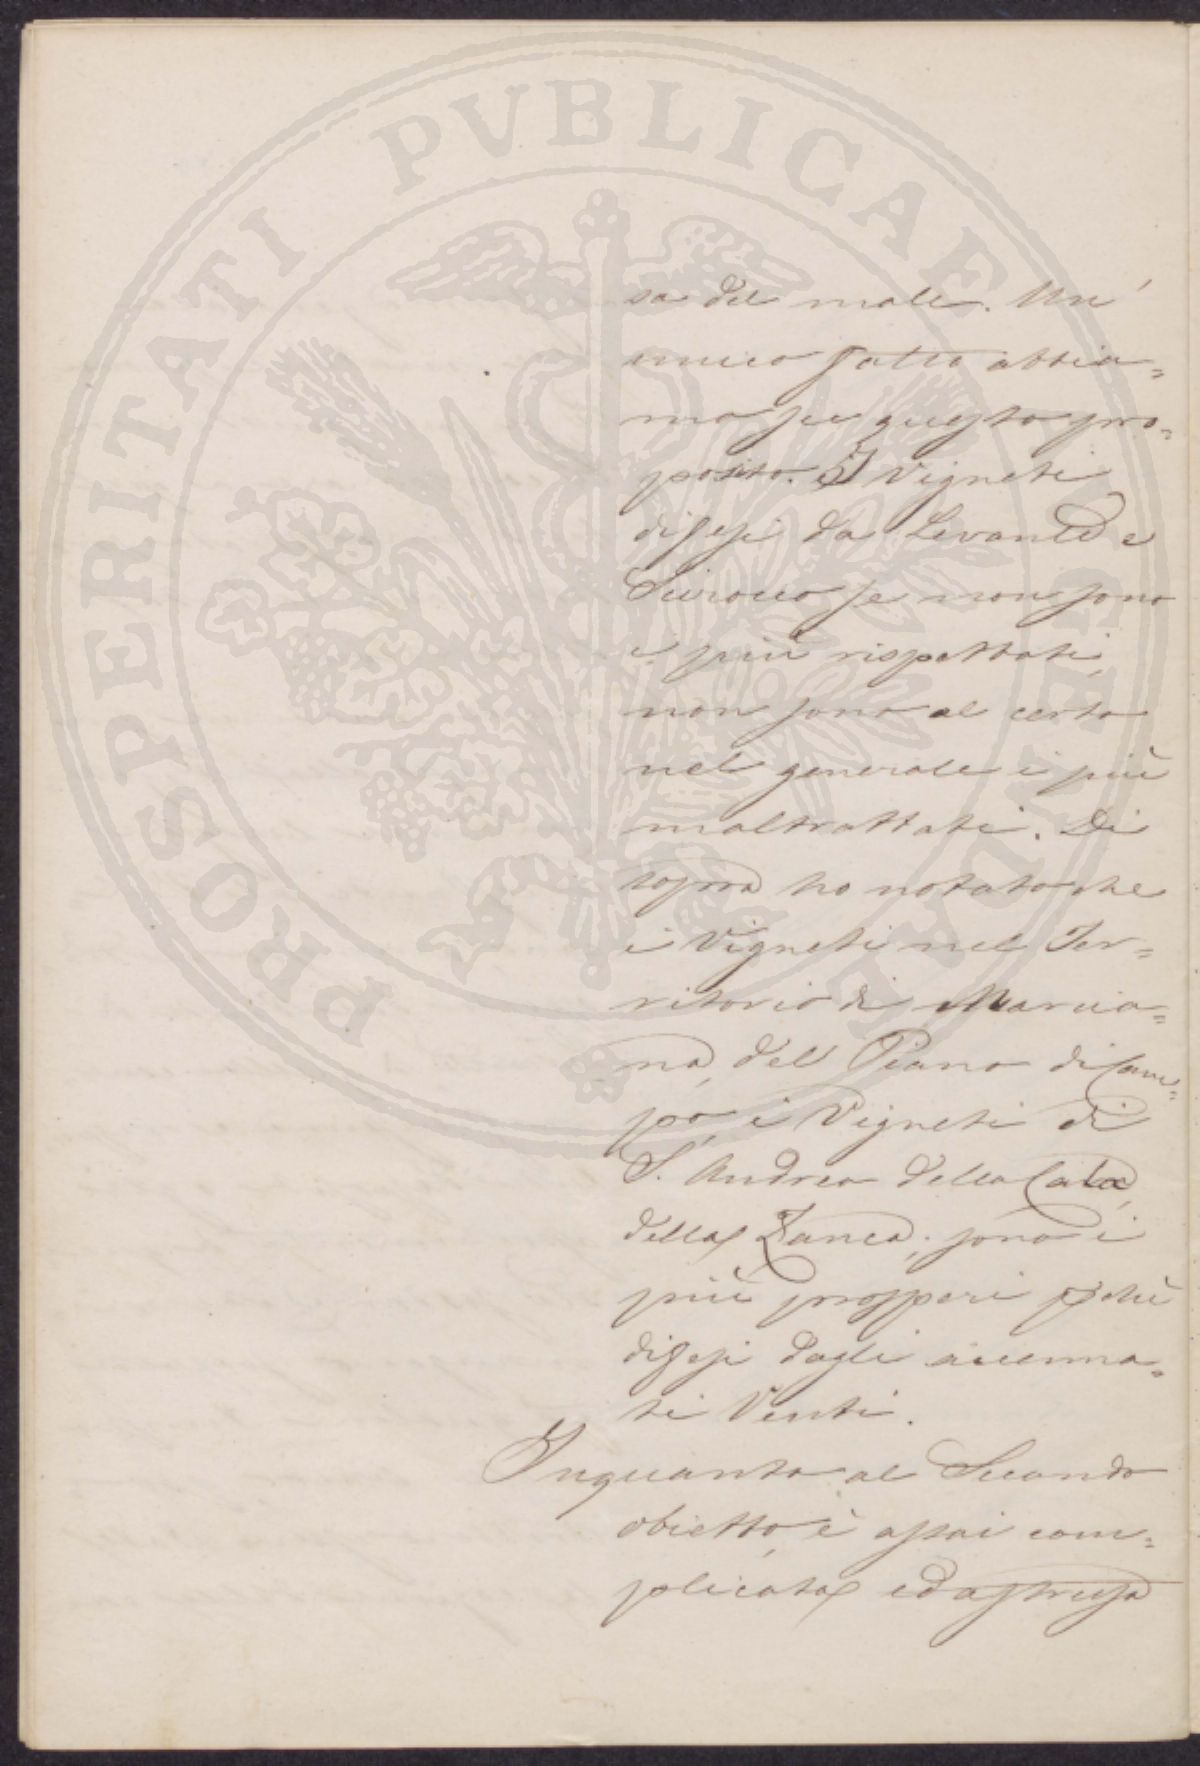 PROSPERITATI PVBLICAE AVGENDAE
sa del male. Un'
unico fatto abbia=
mo su questo pro=
posito. I Vigneti
difesi da Levante e
Scirocco se non sono
i più rispettati,
non sono al certo
nel generale i più
maltrattati. Di
sopra ho notato che
i Vigneti nel Ter=
ritorio di Marcia=
na, del Piano di Cam=
po, i Vigneti di
S. Andrea della Cala,
della Zanca, sono i
più prosperi pchè
difesi dagli accenna=
ti Venti.
Inquanto al Secondo
obietto, è assai com=
plicata ed astrusa